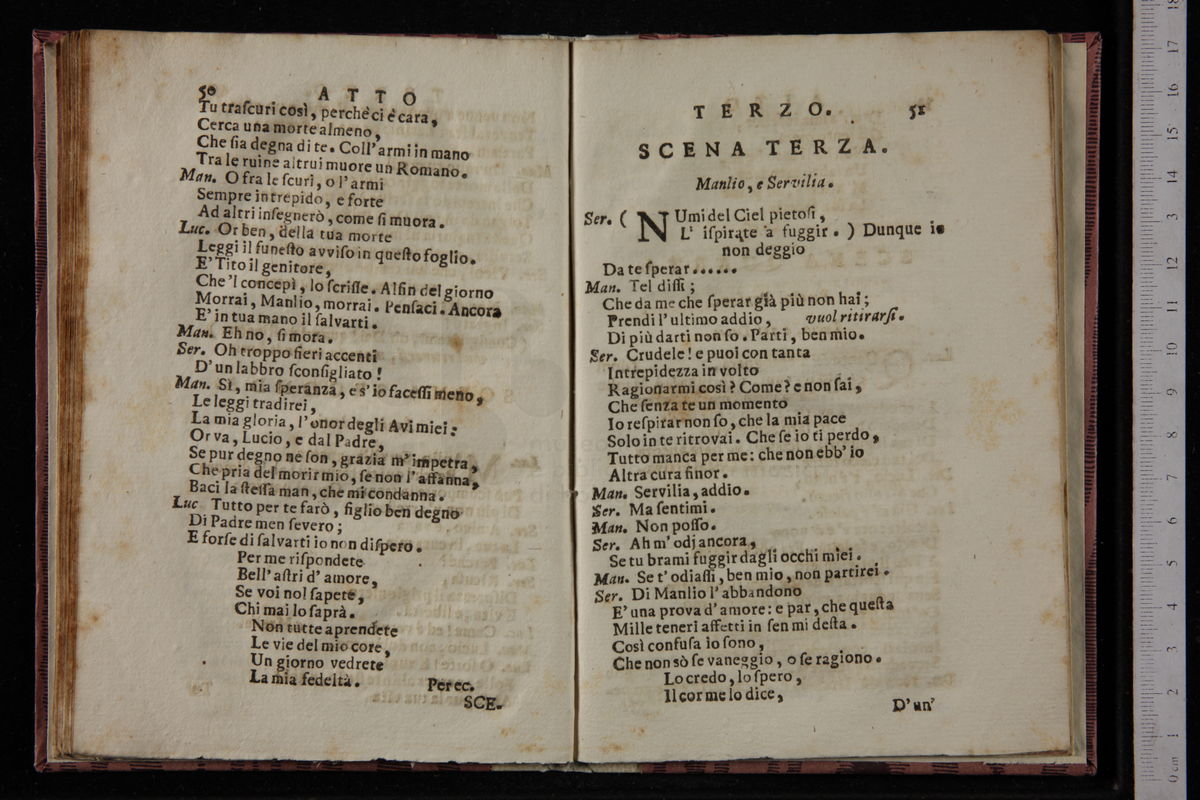 50 ATTO
Tu traſcuri così, perchè ci è cara,
Cerca una morte almeno,
Che ſia degna di te. Coll' armi in mano
Tra le ruine altrui muore un Romano.
Man. O fra le ſcuri, o l' armi
Sempre intrepido, e forte
Ad altri inſegnerò, come ſi muora.
Luc. Or ben, della tua morte
Leggi il funeſto avviſo in queſto foglio.
E' Tito il genitore,
Che 'l concepì, lo ſcriſſe. Alfin del giorno
Morrai, Manlio, morrai. Penſaci. Ancora
E' in tua mano il ſalvarti.
Man. Eh no, ſi mora.
Ser. Oh troppo fieri accenti
D' un labbro ſconſigliato!
Man. Sì, mia ſperanza, e s' io faceſſi meno,
Le leggi tradirei,
La mia gloria, l' onor degli Avi miei:
Or va, Lucio, e dal Padre,
Se pur degno ne ſon, grazia m' impetra,
Che pria del morir mio, ſe non l' affanna,
Baci la ſteſſa man, che mi condanna.
Luc Tutto per te farò, figlio ben degno
Di Padre men ſevero;
E forſe di ſalvarti io non diſpero.
Per me riſpondete
Bell' aſtri d' amore,
Se voi nol ſapete,
Chi mai lo ſaprà.
Non tutte aprendete
Le vie del mio core,
Un giorno vedrete
La mia fedeltà. Per ec.
SCE.
TERZO. 51
SCENA TERZA.
Manlio, e Servilia.
Ser. ( NUmi del Ciel pietoſi,
L' iſpirate a fuggir. ) Dunque io
non deggio
Da te ſperar......
Man. Tel diſſi;
Che da me che ſperar già più non hai;
Prendi l' ultimo addio, vuol ritirarſi.
Di più darti non ſo. Parti, ben mio.
Ser. Crudele! e puoi con tanta
Intrepidezza in volto
Ragionarmi così? Come? e non ſai,
Che ſenza te un momento
Io reſpirar non ſo, che la mia pace
Solo in te ritrovai. Che ſe io ti perdo,
Tutto manca per me: che non ebb' io
Altra cura finor.
Man. Servilia, addio.
Ser. Ma ſentimi.
Man. Non poſſo.
Ser. Ah m' odj ancora,
Se tu brami fuggir dagli occhi miei.
Man. Se t' odiaſſi, ben mio, non partirei.
Ser. Di Manlio l' abbandono
E' una prova d' amore: e par, che queſta
Mille teneri affetti in ſen mi deſta.
Così confuſa io ſono,
Che non sò ſe vaneggio, o ſe ragiono.
Lo credo, lo ſpero,
Il cor me lo dice,
D' un'